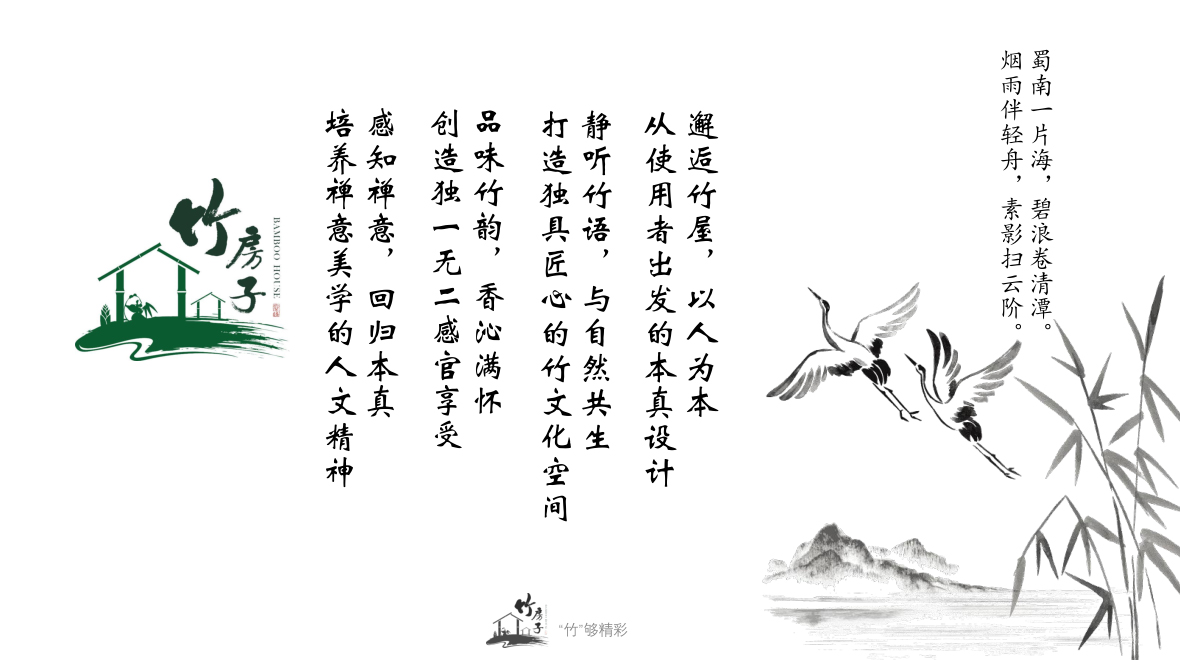 蜀南一片海，碧浪卷清潭。
烟雨伴轻舟，素影扫云阶。
邂逅竹屋，以人为本
从使用者出发的本真设计
静听竹语，与自然共生
打造独具匠心的竹文化空间
品味竹韵，香沁满怀
创造独一无二感官享受
感知禅意，回归本真
培养禅意美学的人文精神
竹房子
BAMBOO HOUSE
竹房子
“竹”够精彩